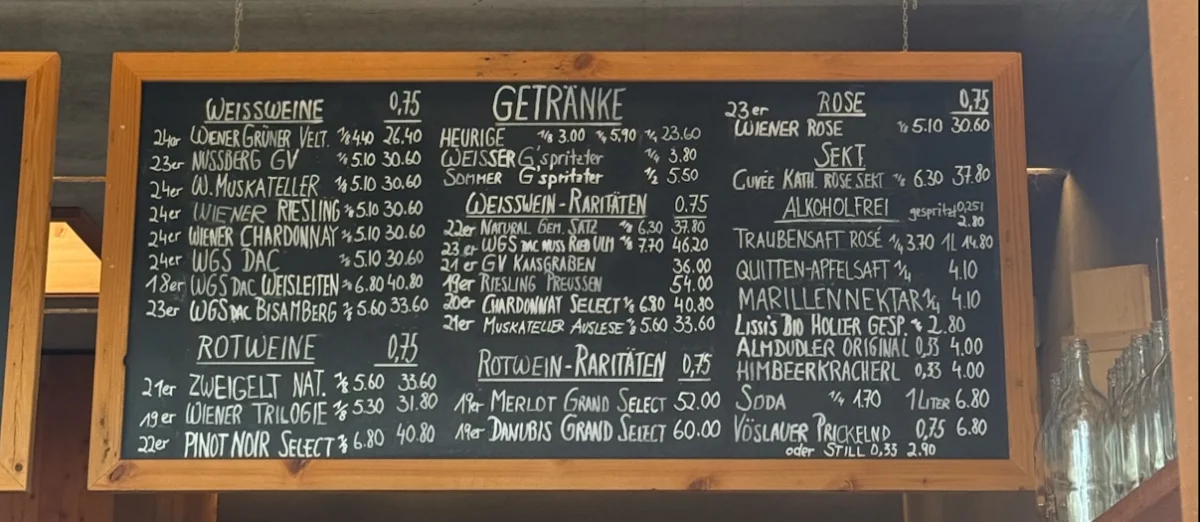 WEISSWEINE 0,75
24er WIENER GRÜNER VELT. 1/8 4.40 26.40
23er NUSSBERG GV 1/8 5.10 30.60
24er W. MUSKATELLER 1/8 5.10 30.60
24er WIENER RIESLING 1/8 5.10 30.60
24er WIENER CHARDONNAY 1/8 5.10 30.60
24er WGS DAC 1/8 5.10 30.60
18er WGS DAC WEISLEITEN 1/8 6.80 40.80
23er WGS DAC BISAMBERG 1/8 5.60 33.60
ROTWEINE 0,75
21er ZWEIGELT NAT. 1/8 5.60 33.60
19er WIENER TRILOGIE 1/8 5.30 31.80
22er PINOT NOIR SELECT 1/8 6.80 40.80
GETRÄNKE
HEURIGE 1/8 3.00 1/4 5,90 1/1 23.60
WEISSER G'spritzter 1/4 3.80
SOMMER G'spritzter 1/2 5.50
WEISSWEIN-RARITÄTEN 0.75
22er NATURAL GEM. SATZ 1/8 6.30 37.80
23er WGS DAC NUSS RIED ULM 1/8 7.70 46.20
21er GV KAASGRABEN 36.00
19er RIESLING PREUSSEN 54.00
20er CHARDONNAY SELECT 1/8 6.80 40.80
21er MUSKATELLER AUSLESE 1/8 5.60 33.60
ROTWEIN-RARITÄTEN 0,75
19er MERLOT GRAND SELECT 52.00
19er DANUBIS GRAND SELECT 60.00
23er ROSE 0,75
WIENER ROSE 1/8 5.10 30.60
SEKT
CUVÉE KATH. ROSE SEKT 1/8 6.30 37.80
ALKOHOLFREI gespritzt 0,25l
2.80
TRAUBENSAFT ROSÉ 1/4 3.70 1L 14.80
QUITTEN-APFELSAFT 1/4 4.10
MARILLENNEKTAR 1/4 4.10
LISSI'S BIO HOLLER GESP. 1/4 2.80
ALMDUDLER ORIGINAL 0,35 4.00
HIMBEERKRACHERL 0,33 4.00
SODA 1/4 1.70 1 LITER 6.80
VÖSLAUER PRICKELND 0,75 6.80
oder STILL 0,33 2.90